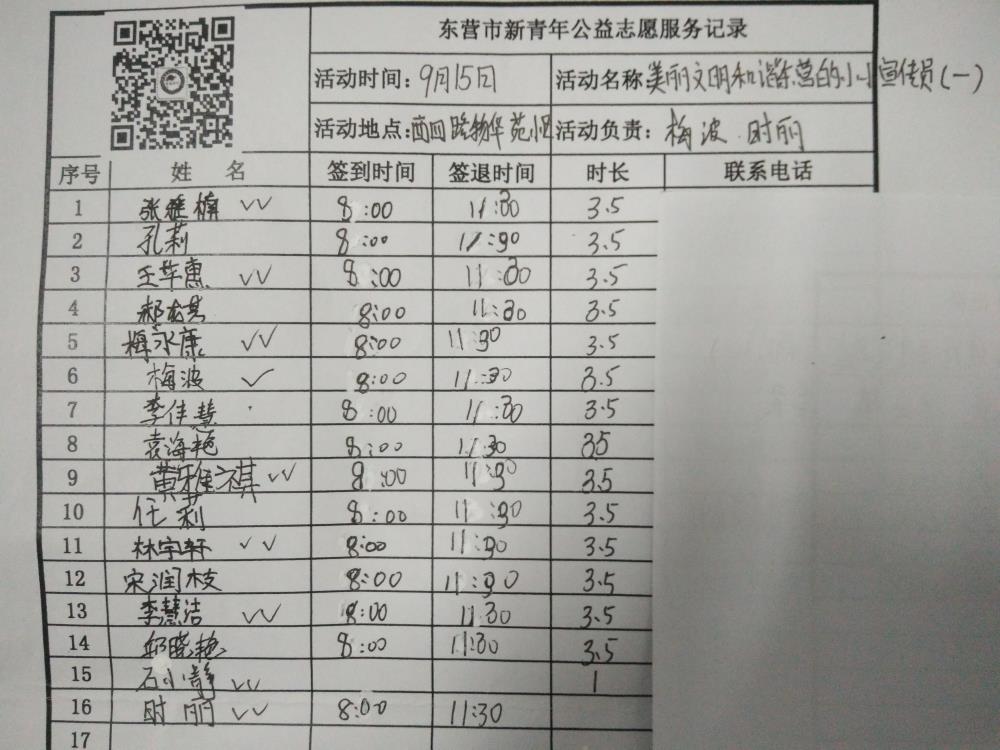 东营市新青年公益志愿服务记录
活动时间：9月15日 活动名称 美丽文明和谐东营的小小宣传员(一)
活动地点：西四路物华苑小区 活动负责：梅波 时丽
序号 姓名 签到时间 签退时间 时长 联系电话
1 张雅楠 ✓✓ 8:00 11:30 3.5
2 孔莉 8:00 11:30 3.5
3 王苹惠 ✓✓ 8:00 11:30 3.5
4 8:00 11:30 3.5
5 梅永康 ✓✓ 8:00 11:30 3.5
6 梅波 ✓ 8:00 11:30 3.5
7 李佳慧 8:00 11:30 3.5
8 袁海艳 8:00 11:30 35
9 黄雅祺 ✓✓ 8:00 11:30 3.5
10 任莉 8:00 11:30 3.5
11 林宇轩 ✓✓ 8:00 11:30 3.5
12 宋润枝 8:00 11:30 3.5
13 李慧洁 ✓✓ 8:00 11:30 3.5
14 邱晓艳 8:00 11:30 3.5
15 石小静 ✓✓ 1
16 时丽 ✓✓ 8:00 11:30
17